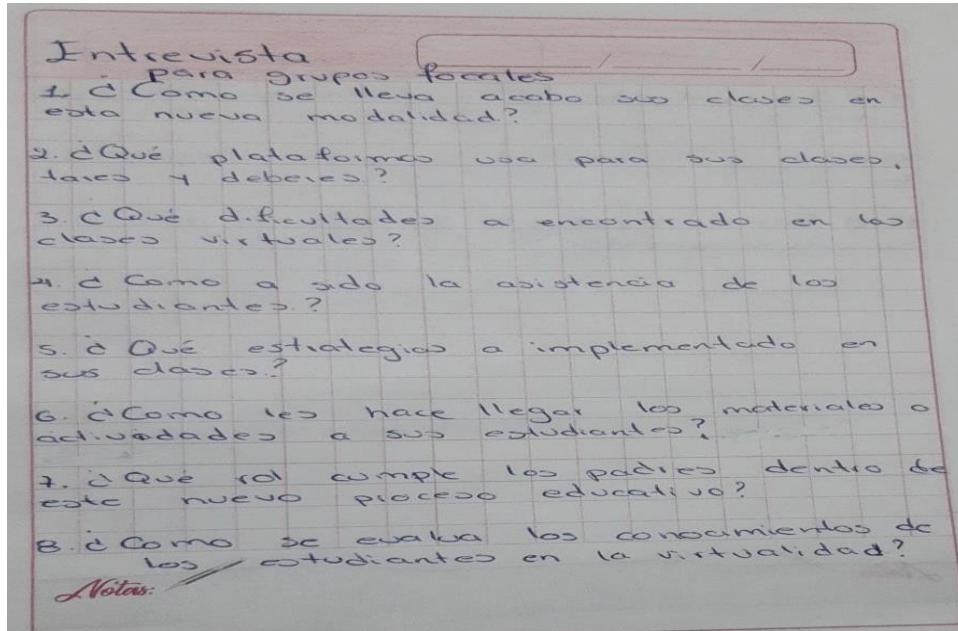 Entrevista
para grupos focales
1. ¿Como se lleva acabo sus clases en
esta nueva modalidad?
2. ¿Qué plataformas usa para sus clases,
tares y deberes?
3. ¿Qué dificultades a encontrado en las
clases virtuales?
4. ¿Como a sido la asistencia de los
estudiantes?
5. ¿Qué estrategias a implementado en
sus clases?
6. ¿Como les hace llegar los materiales o
actividades a sus estudiantes?
7. ¿Qué rol cumple los padres dentro de
este nuevo proceso educativo?
8. ¿Como se evalua los conocimientos de
los estudiantes en la virtualidad?
Notas: